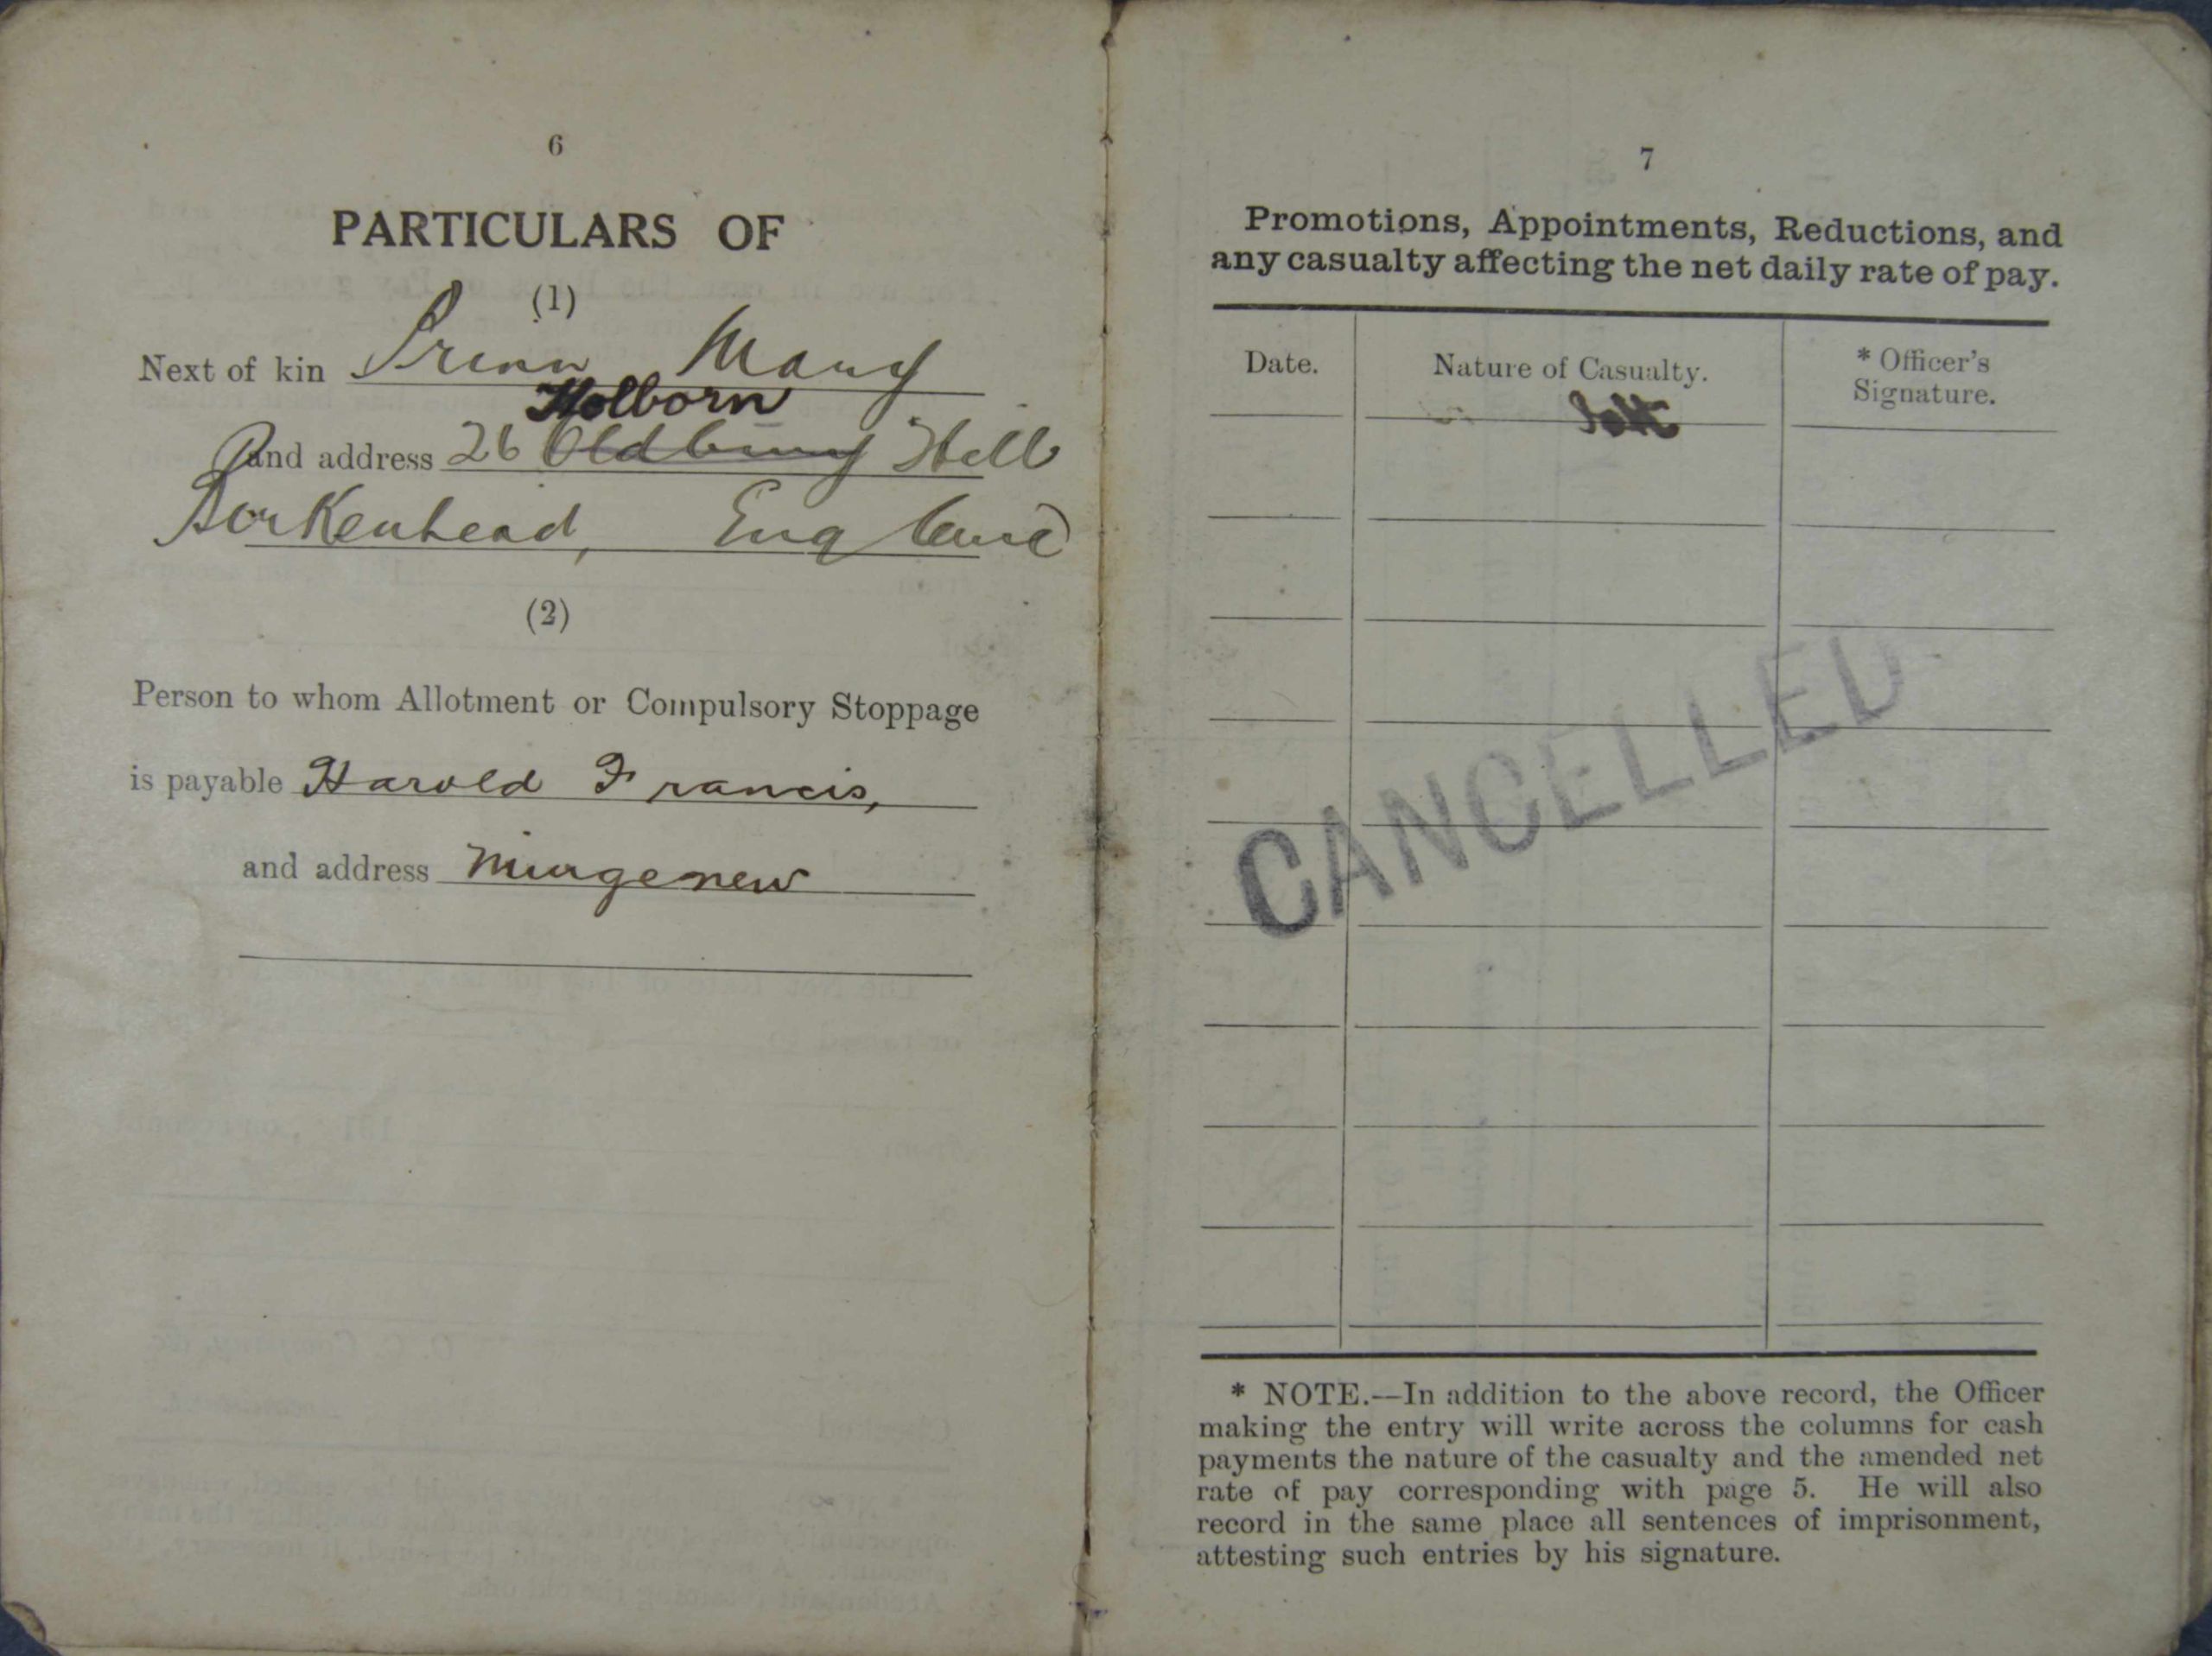 6
PARTICULARS OF
(1)
Next of kin Prinn Mary
Holborn
and address 26 Oldbury Hill
Birkenhead, England
(2)
Person to whom Allotment or Compulsory Stoppage
is payable Harold Francis,
and address Mingenew
7
Promotions, Appointments, Reductions, and
any casualty affecting the net daily rate of pay.
Date.
Nature of Casualty.
* Officer's
Signature.
CANCELLED
* NOTE.—In addition to the above record, the Officer
making the entry will write across the columns for cash
payments the nature of the casualty and the amended net
rate of pay corresponding with page 5. He will also
record in the same place all sentences of imprisonment,
attesting such entries by his signature.